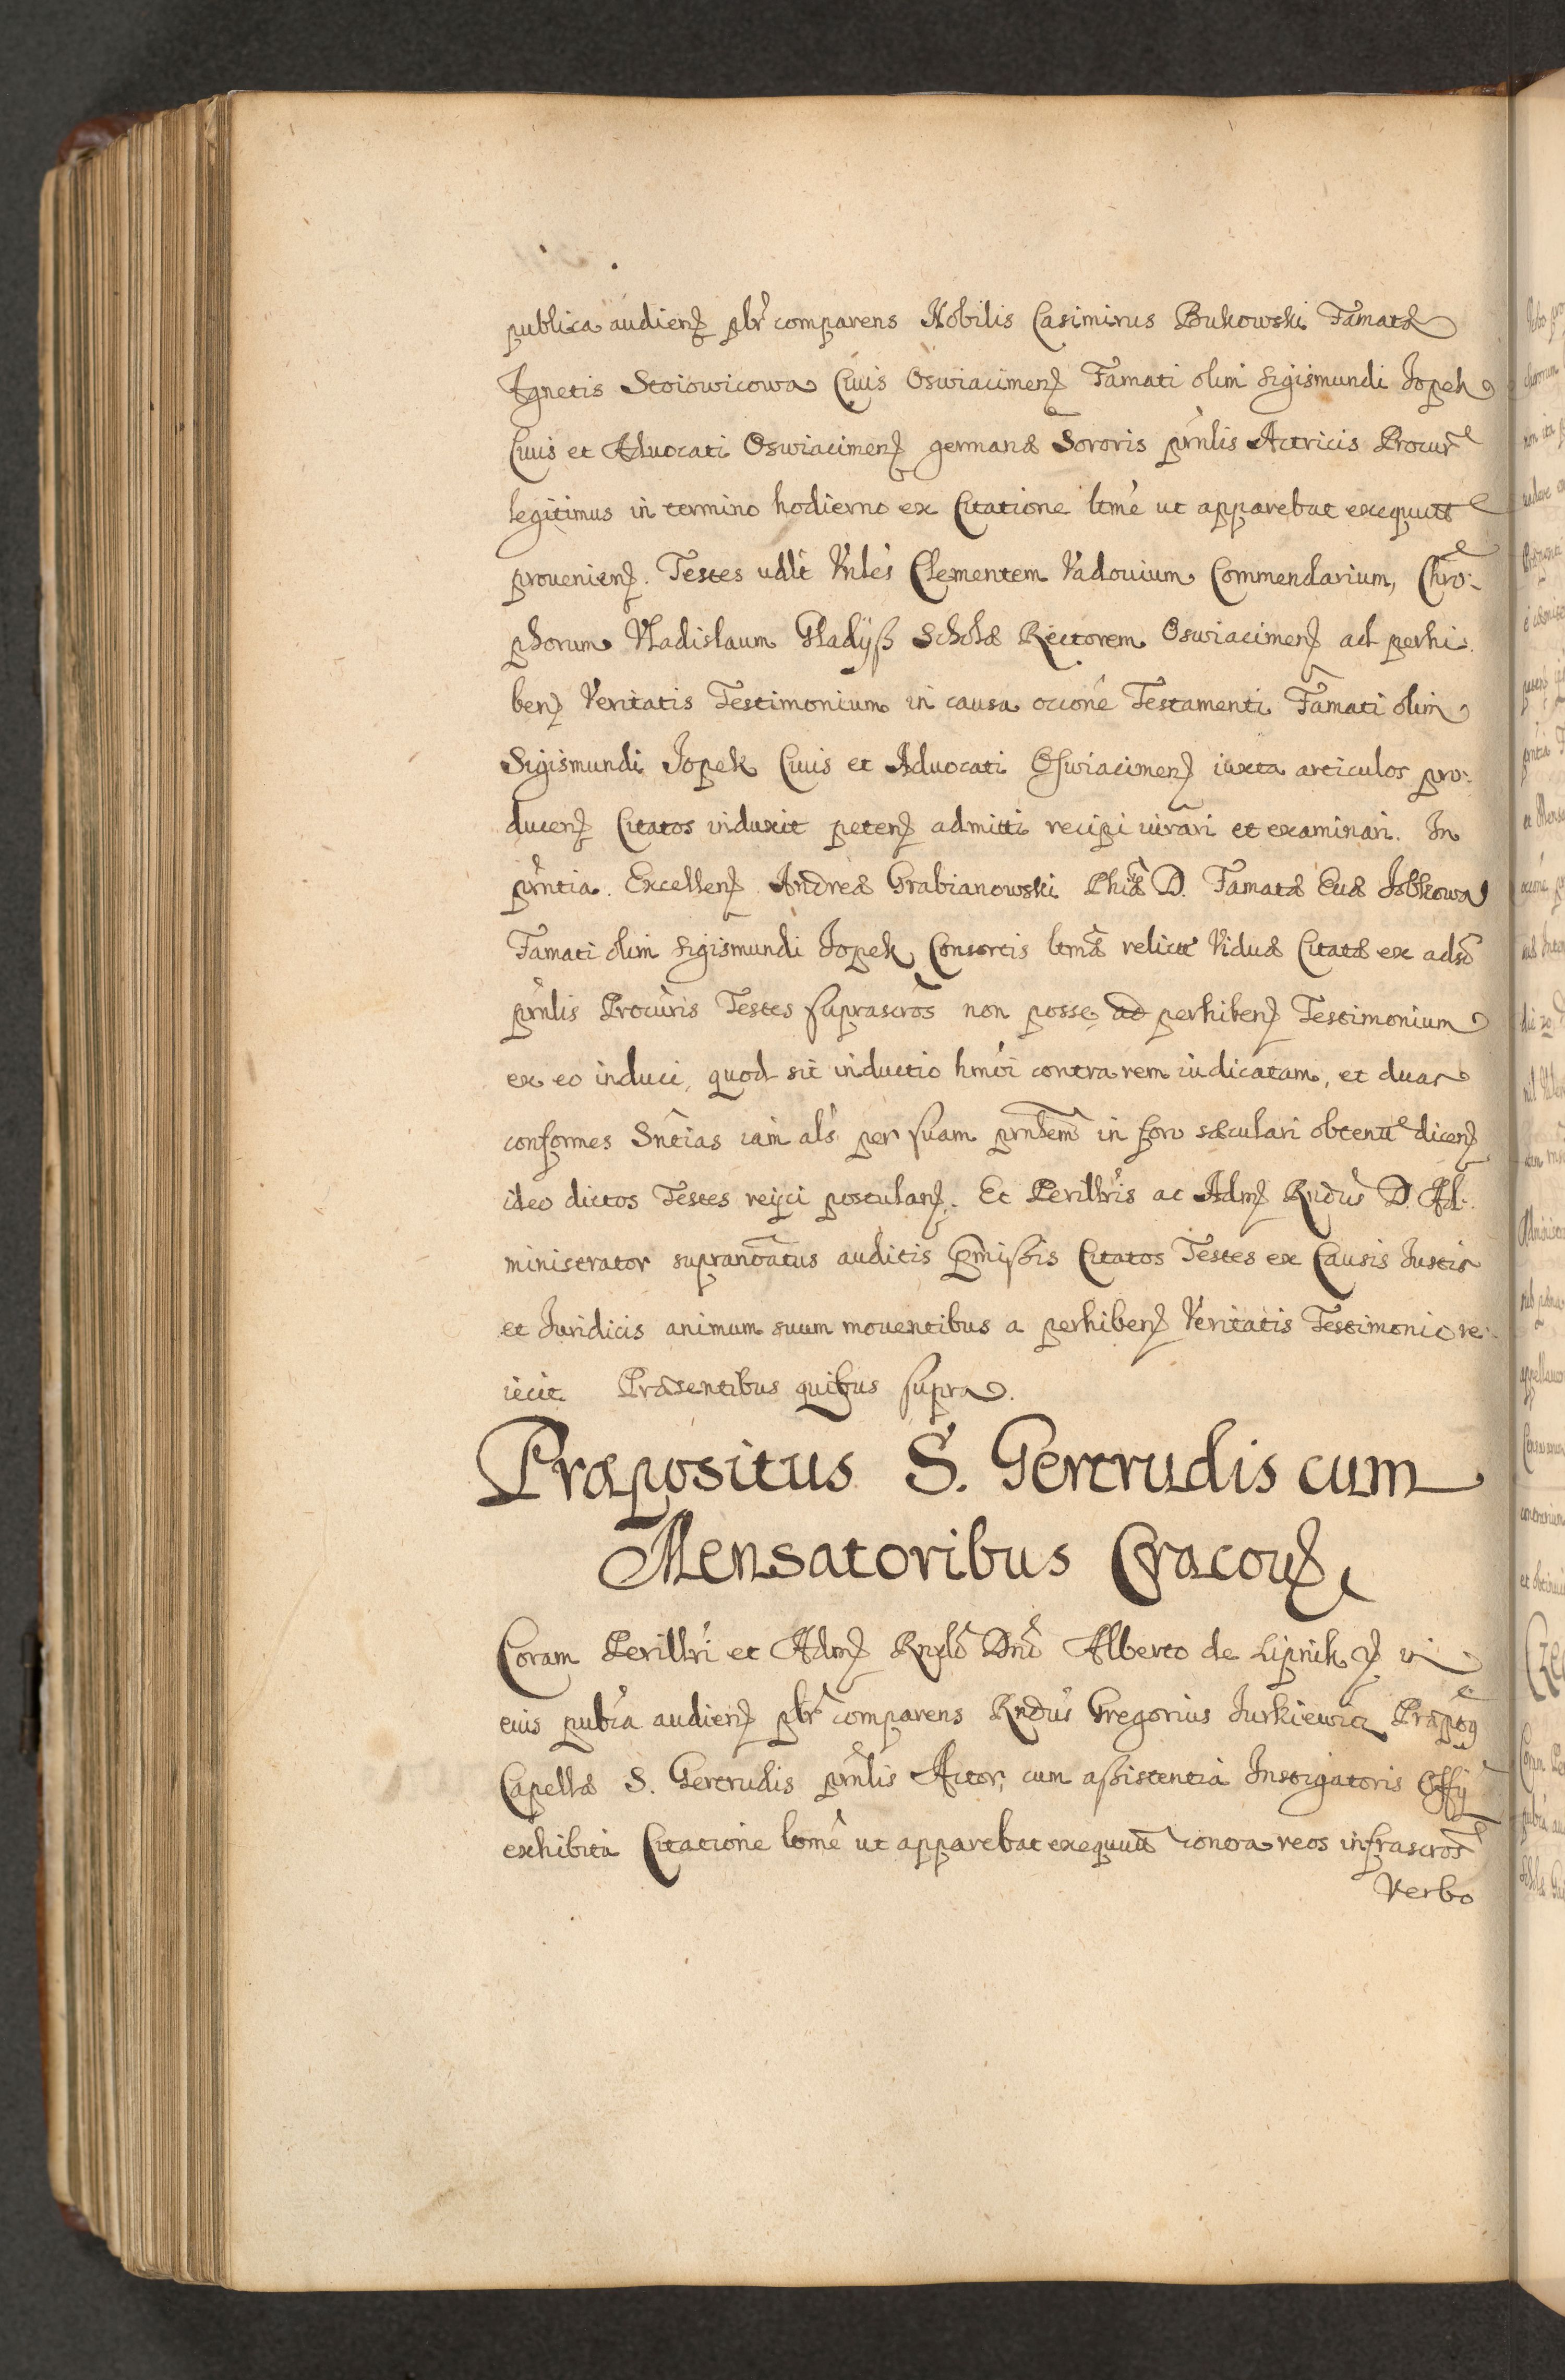 publica audien. plr comparens Nobilis Casimirus Bukowski Famatæ
Agnetis Stoiowicowa Ciuis Oswiacimen. Famati olim Sigismundi Jopek
Ciuis et Aduocati Oswiacimen. germanæ Sororis prnlis Actricis Procur
legitimus in termino hodierno ex Citatione ltme ut apparebat exequut
prouenien. Testes vdlt Vnles Clementem Vadouium Commendarium, Chro:
phorum Vladislaum Gladyß Scholæ Rectorem Oswiacimen. ad perhi
ben. Veritatis Testimonium in causa occone Testamenti Famati olim
Sigismundi Jopek Ciuis et Aduocati Oswiacimen. iuxta articulos pro:
ducen. Citatos induxit peten. admitti recipi iurari et examinari. In
prntia. Excellen. Andreæ Grabianowski Phiæ D. Famatæ Euæ Jobkowa
Famati olim Sigismundi Jopek Consortis ltmæ relictæ Viduæ Citatæ ex adso
prnlis Procuris Testes suprascros non posse ad perhiben. Testimonium
ex eo induci, quod sit inductio hmoi contra rem iudicatam, et duas
conformes Sntias iam als per suam prnlem in foro sæculari obtent dicen.
ideo dictos Testes reijci postulan. Et Perillris ac Adm. Rndus D. Ad:
ministrator supranoatus auditis pmißis Citatos Testes ex Causis Iustis
et Iuridicis animum suum mouentibus a perhiben. Veritatis Testimonio re:
iecit Præsentibus quibus supra.
Præpositus S. Gertrudis cum
Mensatoribus Cracou.
Coram Perillri et Adm. Rndo Dno Alberto de Lipnik in
eius publa audien. plr comparens Rndus Gregorius Iurkiewicz Præpos
Capellæ S. Gertrudis prnlis Actor, cum aßistentia Instigatoris Offij
exhibita Citatione ltme ut apparebat exequut contra reos infrascros
Verbo